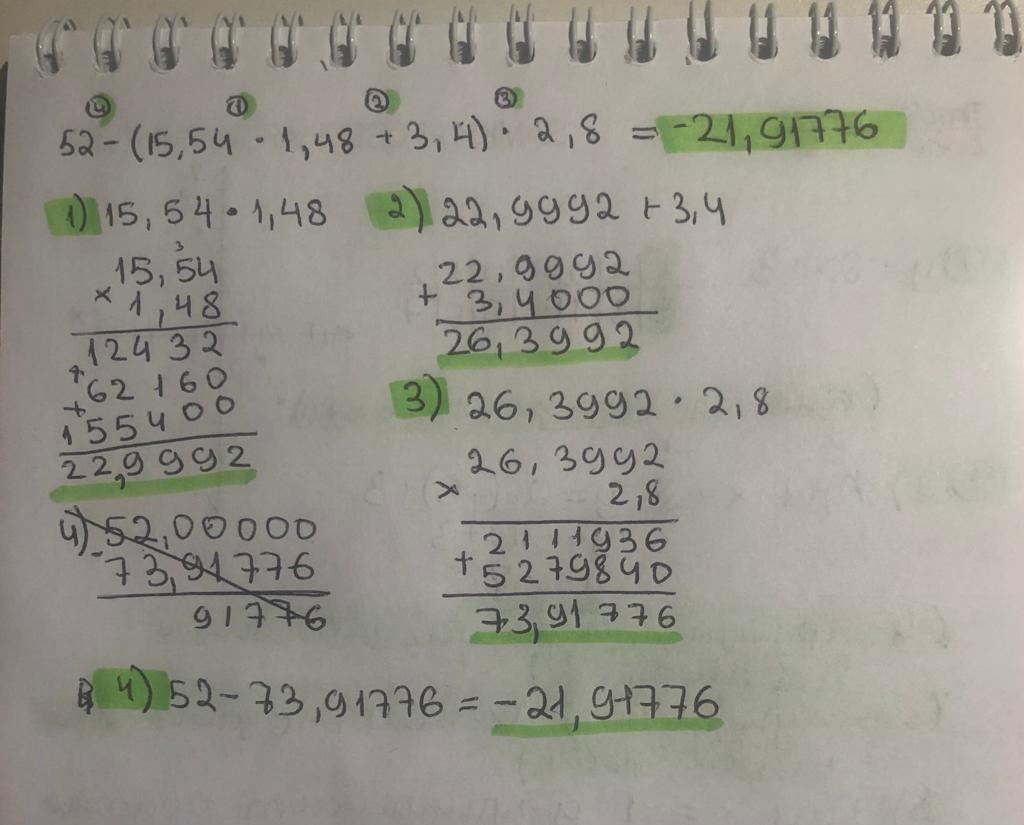 ④ ① ② ③
52-(15,54 · 1,48 + 3,4) · 2,8 = -21,91776
1) 15,54 · 1,48
3
15,54
× 1,48
12432
+ 62160
+ 155400
22,9992
2) 22,9992 + 3,4
22,9992
+ 3,4000
26,3992
3) 26,3992 · 2,8
26,3992
× 2,8
2111936
+ 5279840
73,91776
4) 52,00000
- 73,91776
91776
4) 52 - 73,91776 = -21,91776